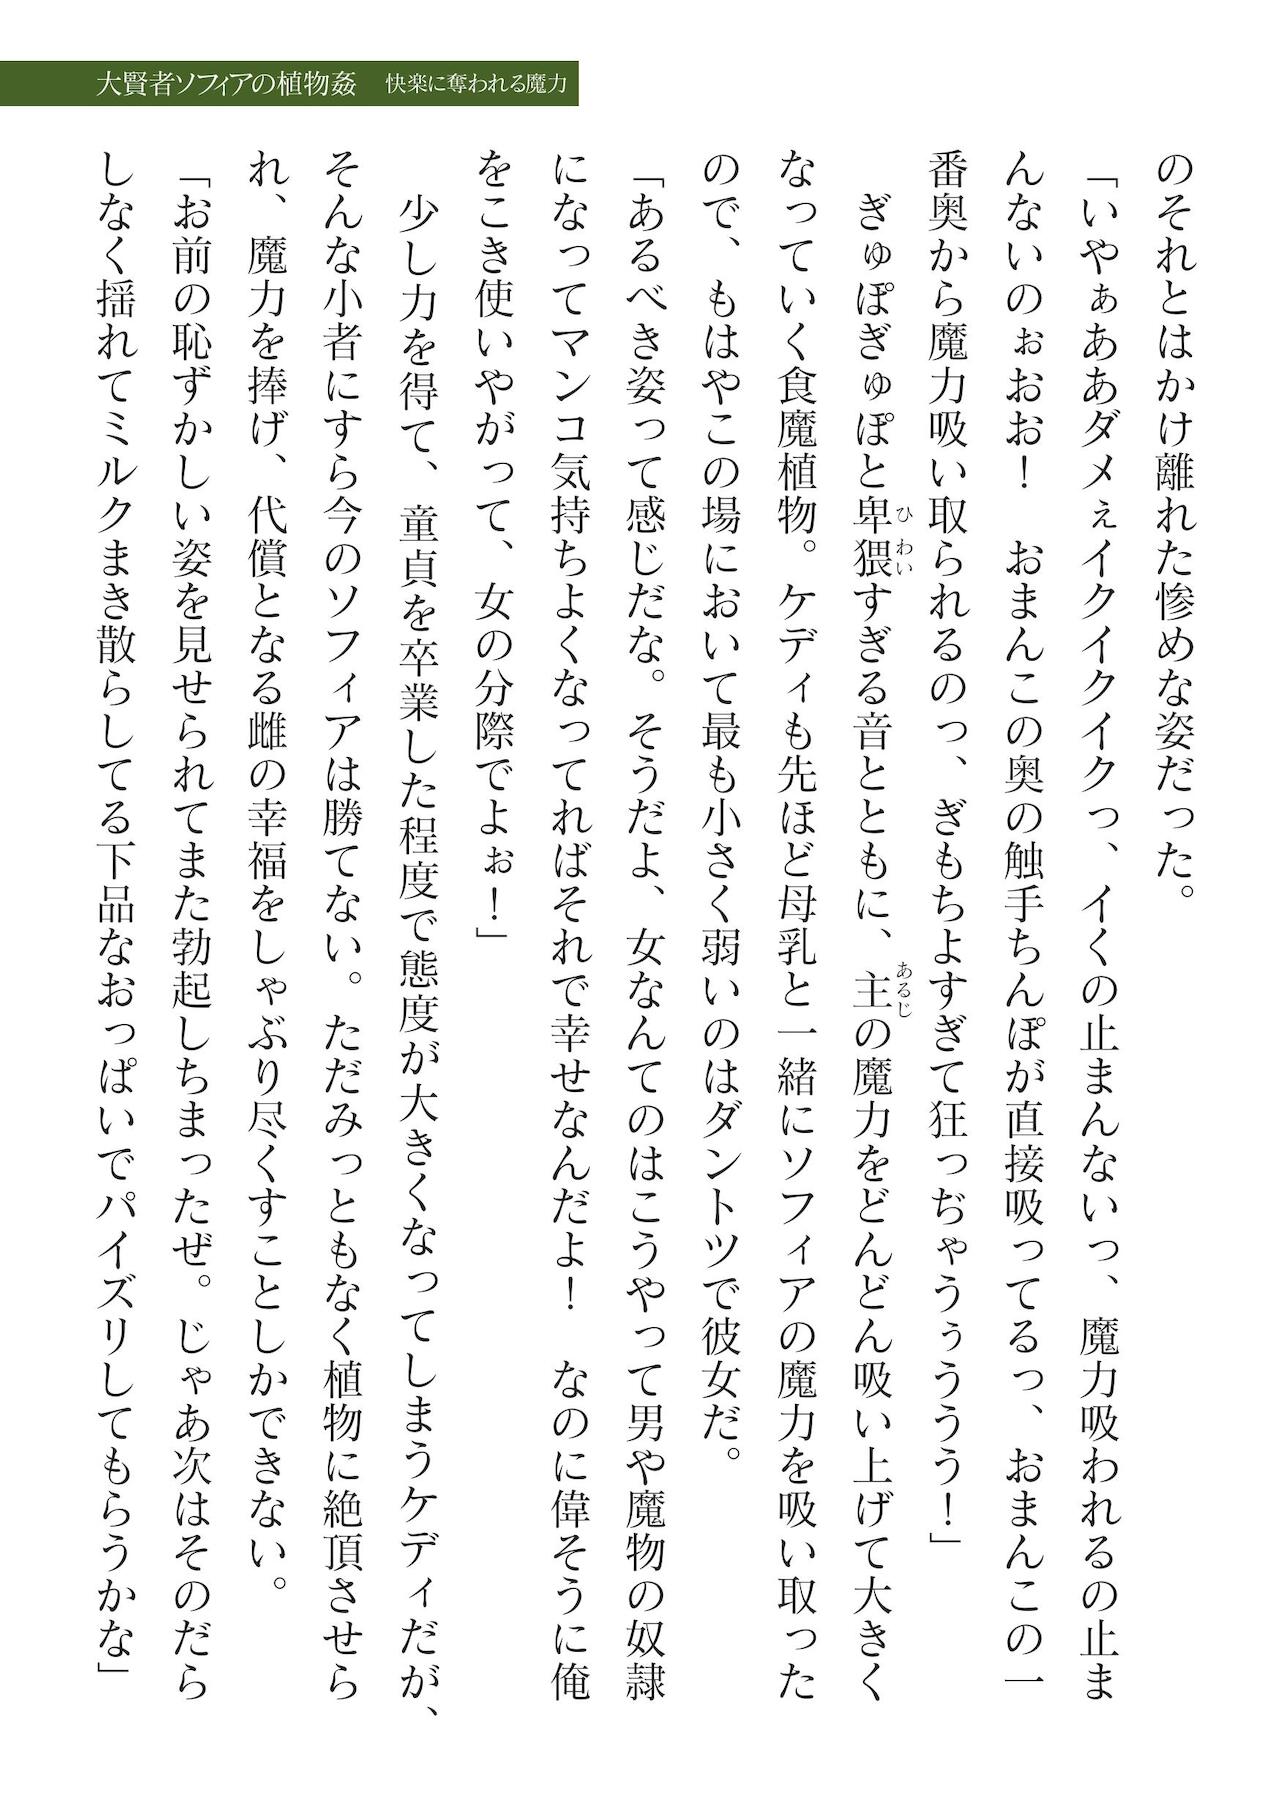 大賢者ソフィアの植物姦　快楽に奪われる魔力
のそれとはかけ離れた惨めな姿だった。
「いやぁああダメぇイクイクイクっ、イくの止まんないっ、魔力吸われるの止ま
んないのぉおお！　おまんこの奥の触手ちんぽが直接吸ってるっ、おまんこの一
番奥から魔力吸い取られるのっ、ぎもちよすぎて狂っぢゃうぅううう！」
　ぎゅぽぎゅぽと卑猥すぎる音とともに、主の魔力をどんどん吸い上げて大きく
なっていく食魔植物。ケディも先ほど母乳と一緒にソフィアの魔力を吸い取った
ので、もはやこの場において最も小さく弱いのはダントツで彼女だ。
「あるべき姿って感じだな。そうだよ、女なんてのはこうやって男や魔物の奴隷
になってマンコ気持ちよくなってればそれで幸せなんだよ！　なのに偉そうに俺
をこき使いやがって、女の分際でよぉ！」
　少し力を得て、童貞を卒業した程度で態度が大きくなってしまうケディだが、
そんな小者にすら今のソフィアは勝てない。ただみっともなく植物に絶頂させら
れ、魔力を捧げ、代償となる雌の幸福をしゃぶり尽くすことしかできない。
「お前の恥ずかしい姿を見せられてまた勃起しちまったぜ。じゃあ次はそのだら
しなく揺れてミルクまき散らしてる下品なおっぱいでパイズリしてもらうかな」
ひ わい
あるじ